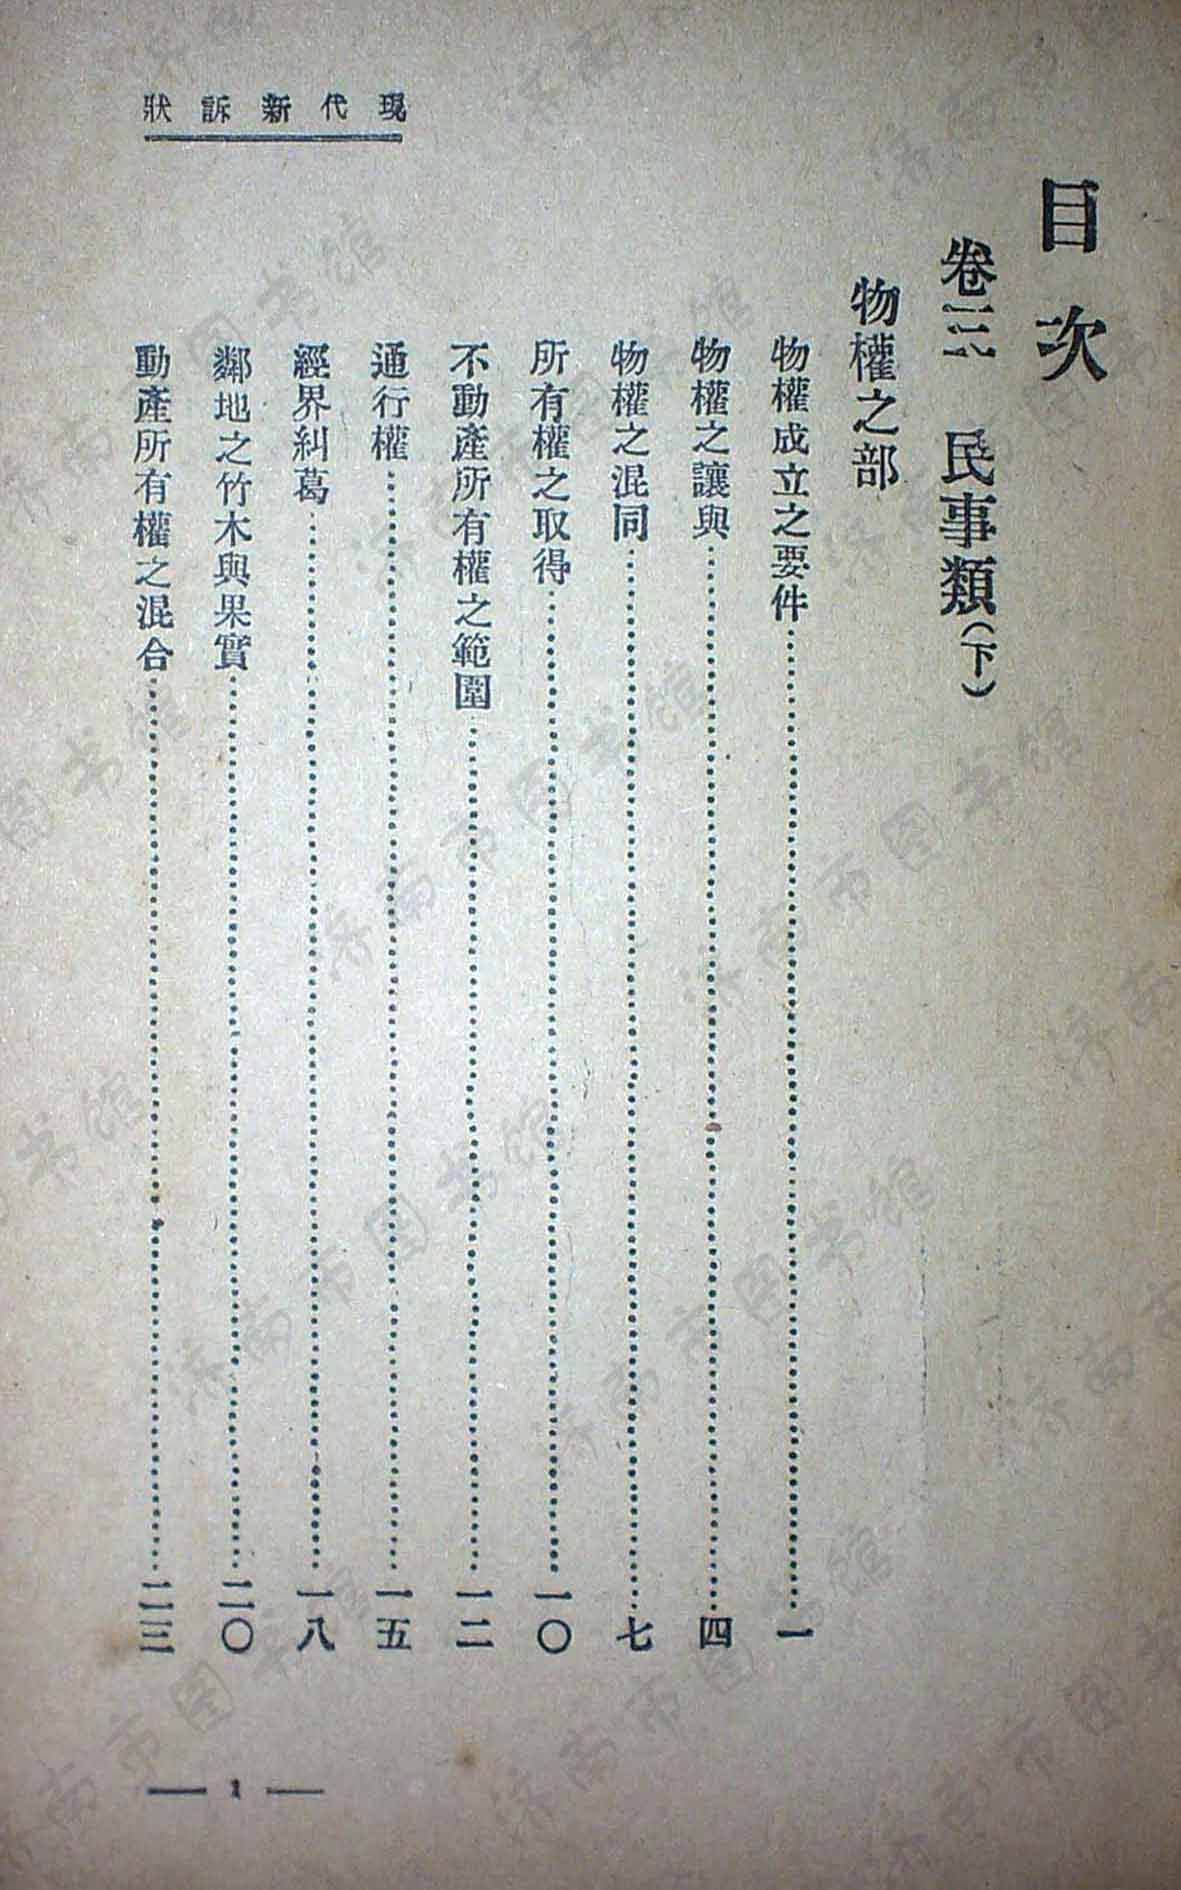 現代新訴狀
目次
卷三 民事類(下)
物權之部
物權成立之要件……一
物權之讓與……四
物權之混同……七
所有權之取得……一〇
不動產所有權之範圍……一二
通行權……一五
經界糾葛……一八
鄰地之竹木與果實……二〇
動產所有權之混合……二三
— 1 —
济南市图书馆